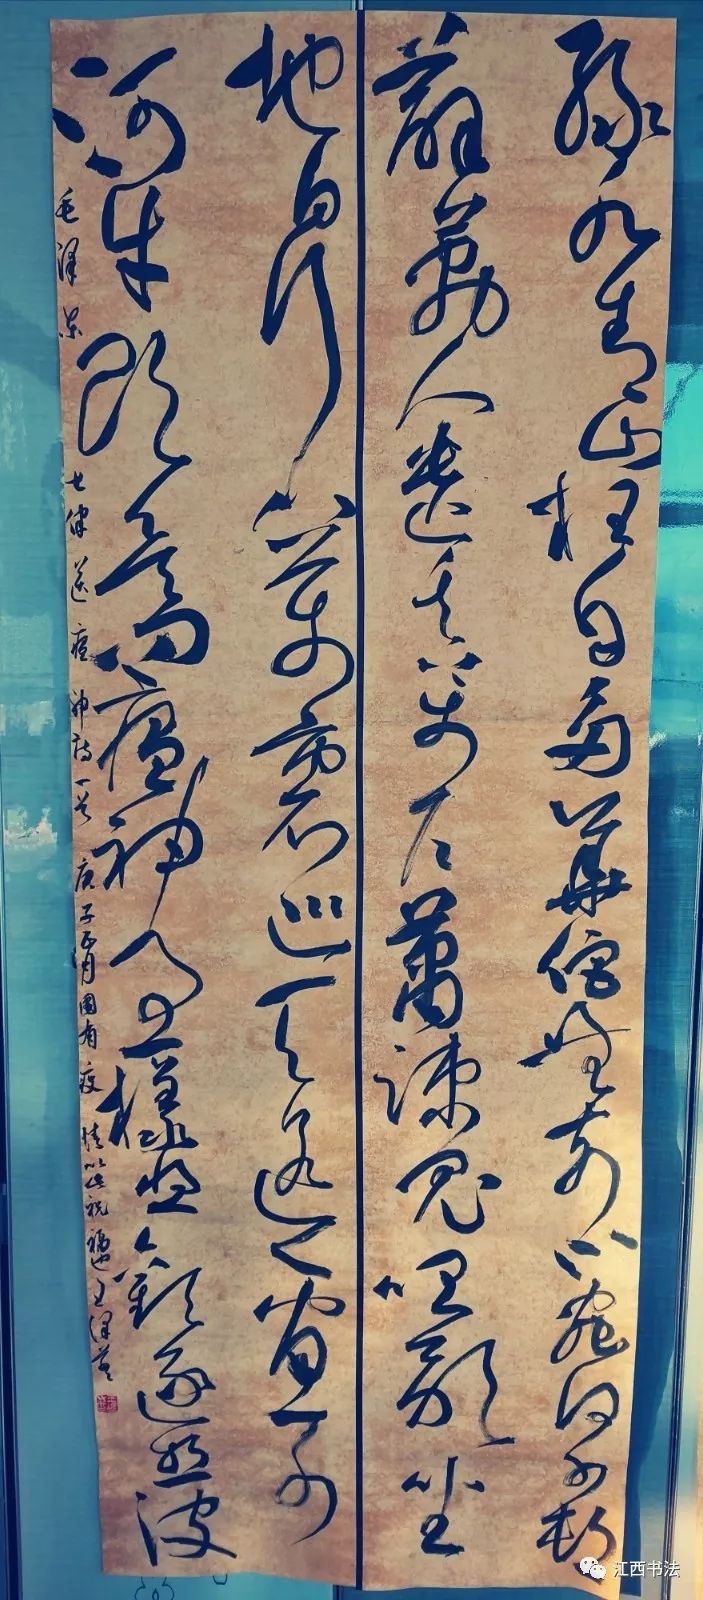 绿水青山枉自多华佗无奈小虫何千村
薜荔人遗矢万户萧疏鬼唱歌坐
地日行八万里巡天遥看一千
河牛郎欲问瘟神事一样悲欢逐逝波
毛泽东七律送瘟神诗一首庚子正月国有疫情以此祝福也王泽
江西书法